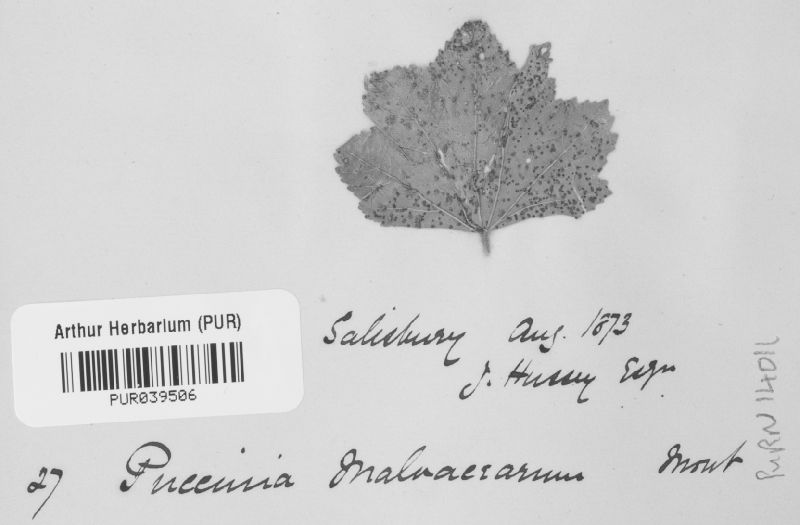 Arthur Herbarium (PUR)
PUR039506
Salisbury Aug. 1873
J. Hussey Esqr
27 Puccinia Malvacearum Mont
PURN 14011